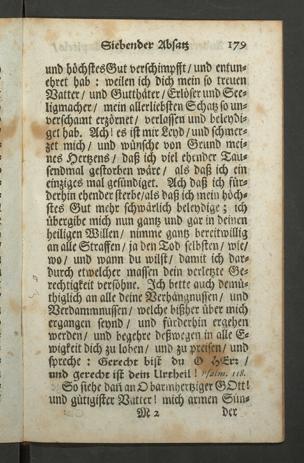 Siebender Absatz 179
und höchstes Gut verschimpfft / und entun-
ehret hab : weilen ich dich mein so treuen
Vatter / und Gutthäter / Erlöser und See-
ligmacher / mein allerliebsten Schatz so un-
verschamt erzörnet / verlassen und beleydi-
get hab. Ach! es ist mir Leyd / und schmer-
zet mich / und wünsche von Grund mei-
nes Hertzens / daß ich viel ehender Tau-
sendmal gestorben wäre / als daß ich ein
einziges mal gesündiget. Ach daß ich für-
derhin ehender sterbe / als daß ich mein höch-
stes Gut mehr schwärlich beleydige ; ich
übergibe mich nun gantz und gar in deinen
heiligen Willen / nimme gantz bereitwillig
an alle Straffen / ja den Tod selbsten / wie /
wo / und wann du wilst / damit ich dar-
durch etwelcher massen dein verletzte Ge-
rechtigkeit versöhne. Ich bette auch demü-
thiglich an alle deine Verhängnussen / und
Verdammnussen / welche bißher über mich
ergangen seynd / und fürderhin ergehen
werden / und begehre deßwegen in alle E-
wigkeit dich zu loben / und zu preisen / und
spreche : Gerecht bist du O HErr /
und gerecht ist dein Urtheil ! Psalm. 118.
So siehe dañ an O barmhertziger GOtt!
und gütigister Vatter! mich armen Sün-
M 2 der